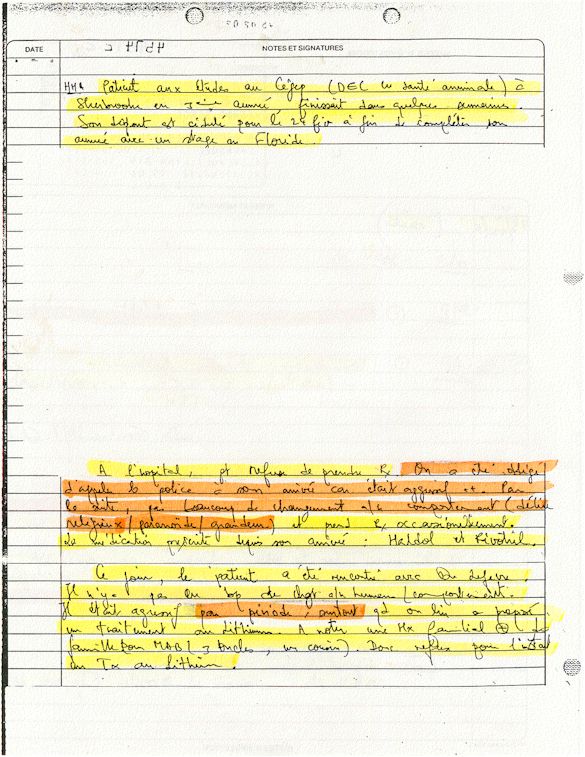 DATE
NOTES ET SIGNATURES
Patient aux études au Cégep (DEC en santé animale) à
Sherbrooke en 3ième année finissait dans quelques semaines.
Son départ est cédulé pour le 24 fév à fin de compléter son
année avec un stage en Floride.
A l'hopital, pt refuse de prendre Rx On a été obligé
d'appeler la police à son arrivée car était agressif ++. Par
la suite, pas beaucoup de changement a/n comportement (délire
religieux / paranoïde / grandeur) et prend Rx occasionnellement
de médication prescrite depuis son arrivée : Haldol et Rivotril.
Ce jour, le patient a été rencontré avec Dr Lefevre.
Il n'y a pas eu bp de chgt a/n humeur / comportement.
Il était agressif par période, surtout qd on lui a proposé
un traitement au lithium. A noter une Hx familial ⊕
famille pour MAB (3 oncles, un cousin). Donc refus pour l'
du Tx au lithium.